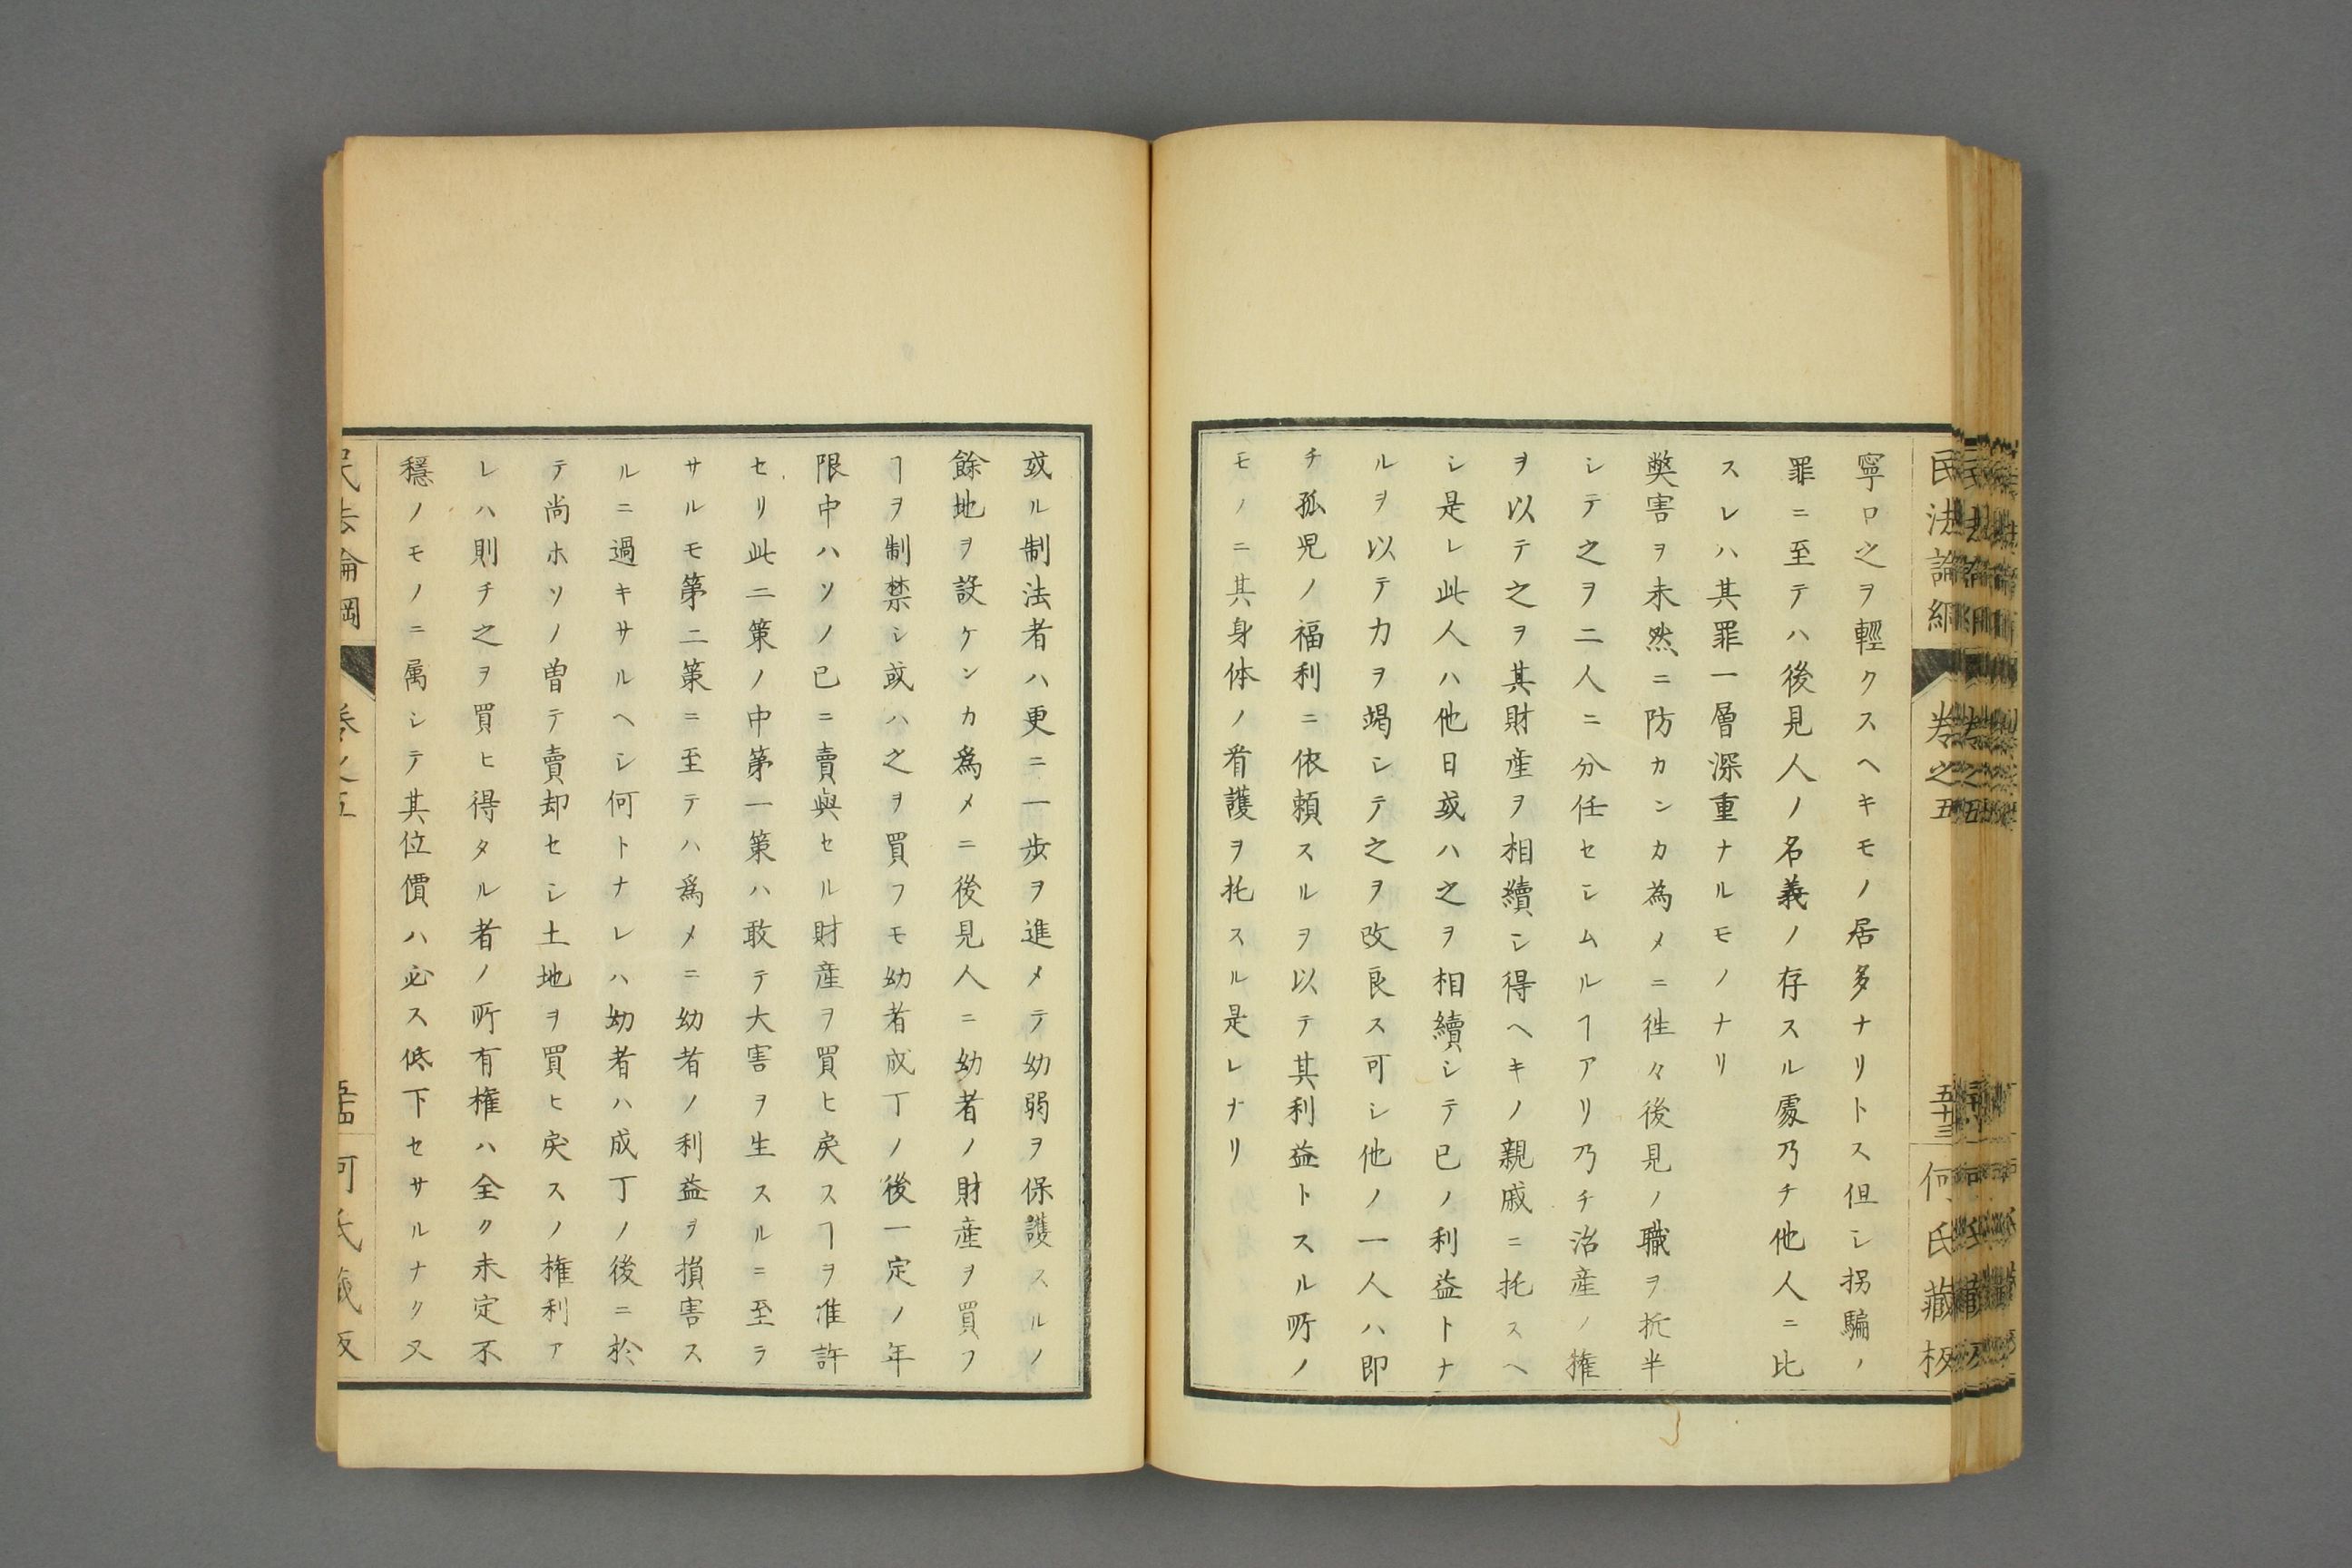 民法論綱 卷之五 五十三 何氏藏板
寧ロ之ヲ輕クスヘキモノ居多ナリトス但シ拐騙ノ
罪ニ至テハ後見人ノ名義ノ存スル處乃チ他人ニ比
スレハ其罪一層深重ナルモノナリ
獘害ヲ未然ニ防カンカ為メニ徃々後見ノ職ヲ折半
シテ之ヲ二人ニ分任セシムルヿアリ乃チ治產ノ権
ヲ以テ之ヲ其財產ヲ相續シ得ヘキノ親戚ニ托スヘ
シ是レ此人ハ他日或ハ之ヲ相續シテ已ノ利益トナ
ルヲ以テ力ヲ竭シテ之ヲ改良ス可シ他ノ一人ハ即
チ孤児ノ福利ニ依頼スルヲ以テ其利益トスル所ノ
モノニ其身体ノ看護ヲ托スル是レナリ
或ル制法者ハ更ニ一歩ヲ進メテ幼弱ヲ保護スルノ
餘地ヲ設ケンカ爲メニ後見人ニ幼者ノ財產ヲ買フ
ヿヲ制禁シ或ハ之ヲ買フモ幼者成丁ノ後一定ノ年
限中ハソノ已ニ賣與セル財產ヲ買ヒ戾スヿヲ准許
セリ此二策ノ中第一策ハ敢テ大害ヲ生スルニ至ラ
サルモ第二策ニ至テハ爲メニ幼者ノ利益ヲ損害ス
ルニ過キサルヘシ何トナレハ幼者ハ成丁ノ後ニ於
テ尚ホソノ曽テ賣却セシ土地ヲ買ヒ戾スノ権利ア
レハ則チ之ヲ買ヒ得タル者ノ所有権ハ全ク未定不
穩ノモノニ属シテ其位價ハ必ス低下セサルナク又
民法論綱 卷之五 五十四 何氏藏板